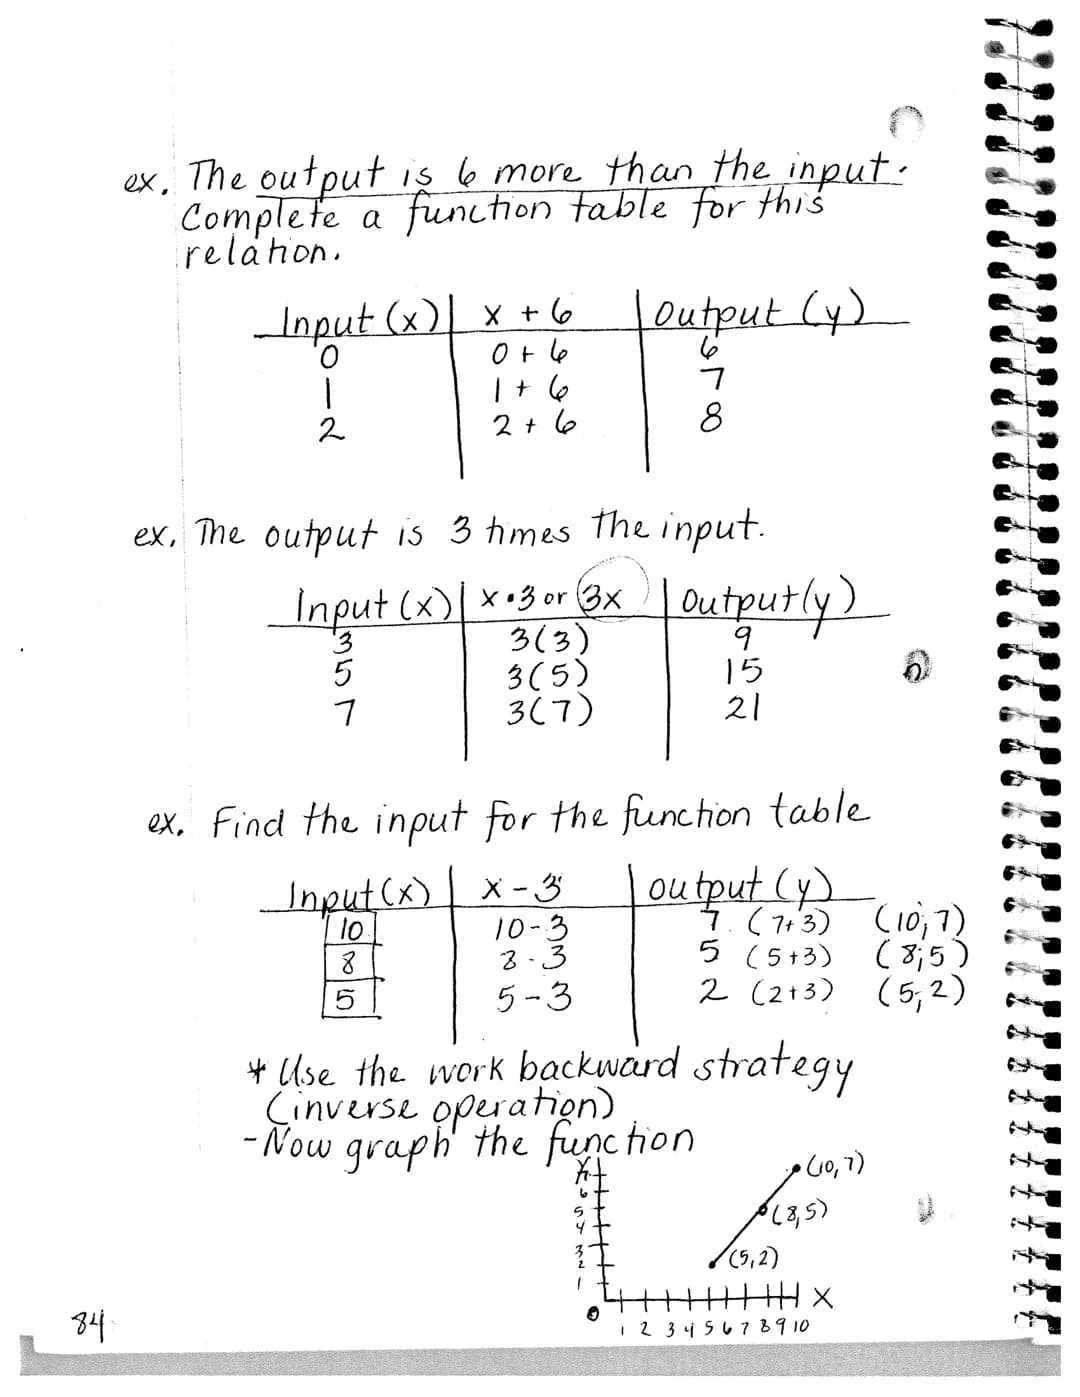 ex. The output is 6 more than the input.
Complete a function table for this
relation.
Input (x) | x + 6 | Output (y)
0 0 + 6 6
1 1 + 6 7
2 2 + 6 8
ex. The output is 3 times the input.
Input (x) | x • 3 or 3x | Output (y)
3 3(3) 9
5 3(5) 15
7 3(7) 21
ex. Find the input for the function table
Input (x) | x - 3 | output (y)
10 10-3 7 (7+3) (10,7)
8 8-3 5 (5+3) (8,5)
5 5-3 2 (2+3) (5,2)
* Use the work backward strategy
(inverse operation)
- Now graph the function
Y
(10,7)
6
5 (8,5)
4
3 (5,2)
2
1
0 X
1 2 3 4 5 6 7 8 9 10
84